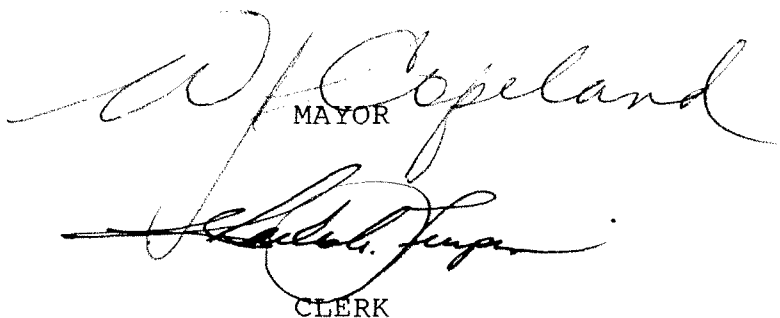 WJ Copeland
MAYOR
CLERK